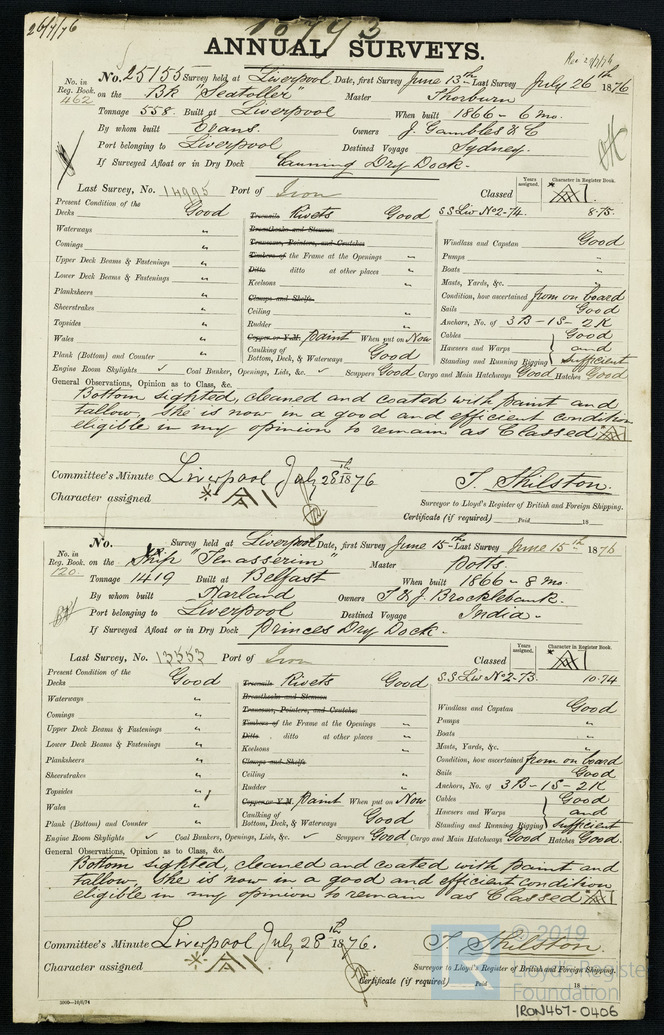 26/7/76
10793
ANNUAL SURVEYS.
No. in Reg. Book. 462
No. 25155 Survey held at Liverpool Date, first Survey June 13th Last Survey July 26th 1876
on the Bk "Seatoller" Master Thorburn
Tonnage 558 Built at Liverpool When built 1866 - 6 mo.
By whom built Evans. Owners J. Gambles & C
Port belonging to Liverpool Destined Voyage Sydney.
If Surveyed Afloat or in Dry Dock Canning Dry Dock.
Last Survey, No. 14995 Port of Iron Classed Years assigned. Character in Register Book. A1
Present Condition of the
Decks Good
Waterways "
Comings "
Upper Deck Beams & Fastenings "
Lower Deck Beams & Fastenings "
Planksheers "
Sheerstrakes "
Topsides "
Wales "
Plank (Bottom) and Counter "
Treenails Rivets Good
Breasthooks and Stemson
Transoms, Pointers, and Crutches
Timbers of the Frame at the Openings "
Ditto ditto at other places "
Keelsons "
Clamps and Shelfs
Ceiling "
Rudder "
Copper or Y.M. Paint When put on Now
Caulking of Bottom, Deck, & Waterways Good
S.S. Liv No 2-74. 8.75.
Windlass and Capstan Good
Pumps "
Boats "
Masts, Yards, &c.
Condition, how ascertained from on board
Sails Good
Anchors, No. of 3B - 1S - 2K
Cables Good
Hawsers and Warps and
Standing and Running Rigging Sufficient
Engine Room Skylights ✓ Coal Bunkers, Openings, Lids, &c. ✓ Scuppers Good Cargo and Main Hatchways Good Hatches Good
General Observations, Opinion as to Class, &c.
Bottom sighted, cleaned and coated with paint and
tallow, She is now in a good and efficient condition
eligible in my opinion to remain as Classed A1
Committee's Minute Liverpool July 28th 1876
T. Shilston.
Character assigned A1
Surveyor to Lloyd's Register of British and Foreign Shipping.
Certificate (if required) Paid 18
No. in Reg. Book. 120.
No. Survey held at Liverpool Date, first Survey June 15th Last Survey June 15th 1876
on the Ship "Tenasserim" Master Potts.
Tonnage 1419 Built at Belfast When built 1866 - 8 mo.
By whom built Harland Owners T & J. Brocklebank.
Port belonging to Liverpool Destined Voyage India.
If Surveyed Afloat or in Dry Dock Princes Dry Dock.
Last Survey, No. 13553 Port of Iron Classed Years assigned. Character in Register Book. A1
Present Condition of the
Decks Good
Waterways "
Comings "
Upper Deck Beams & Fastenings "
Lower Deck Beams & Fastenings "
Planksheers "
Sheerstrakes "
Topsides "
Wales "
Plank (Bottom) and Counter "
Treenails Rivets Good
Breasthooks and Stemson
Transoms, Pointers, and Crutches
Timbers of the Frame at the Openings "
Ditto ditto at other places "
Keelsons "
Clamps and Shelfs
Ceiling "
Rudder "
Copper or Y.M. Paint When put on Now
Caulking of Bottom, Deck, & Waterways Good
S.S. Liv No 2-73. 10.74
Windlass and Capstan Good
Pumps "
Boats "
Masts, Yards, &c. "
Condition, how ascertained from on board
Sails Good
Anchors, No. of 3B - 1S - 2K
Cables Good
Hawsers and Warps and
Standing and Running Rigging Sufficient
Engine Room Skylights ✓ Coal Bunkers, Openings, Lids, &c. ✓ Scuppers Good Cargo and Main Hatchways Good Hatches Good
General Observations, Opinion as to Class, &c.
Bottom sighted, cleaned and coated with paint and
tallow, She is now in a good and efficient condition
eligible in my opinion to remain as Classed A1
Committee's Minute Liverpool July 28th 1876.
T. Shilston.
Character assigned A1
Surveyor to Lloyd's Register of British and Foreign Shipping.
Certificate (if required) Paid 18
© 2019
Lloyd's Register
Foundation
IRON467-0406